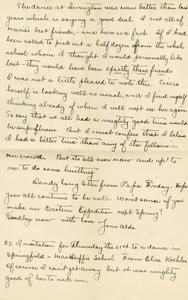 The dance at Arrington was even better than last
years which is saying a good deal. I met all of
Marie's best friends, - and here is a fact. If I had
been asked to pick out a half dozen from the whole
school whom I thought I would personally like
best - they would have been exactly these friends
I was not a little pleased to note this.
herself is looking as well as usual, and I find myself
thinking already of when I will next see her again
To say that we all had a mighty good time would
be superfluous. But I must confess that I believe
I had a better time than any of the fellows in
our crowd. But its all over now - and up to
me to do some hustling.
Dandy long letter from Papa Friday. Hope
you all continue to be well. Want some of you
make an Eastern Expedition next Spring!
Goodbye now with love
Jon Alda
P.S. Invitation for Thursday the 21st to a dance in
Springfield - MacDuffie School. From Olive
Of course I can't get away but it was mighty
good of her to ask me.